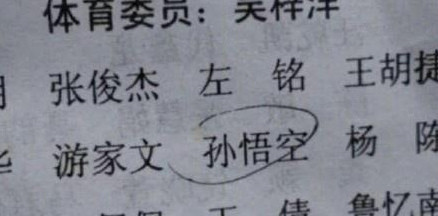 体育委员：吴梓洋
张俊杰 左 铭 王胡捷
游家文 孙悟空 杨 陈
倩 鲁忆南